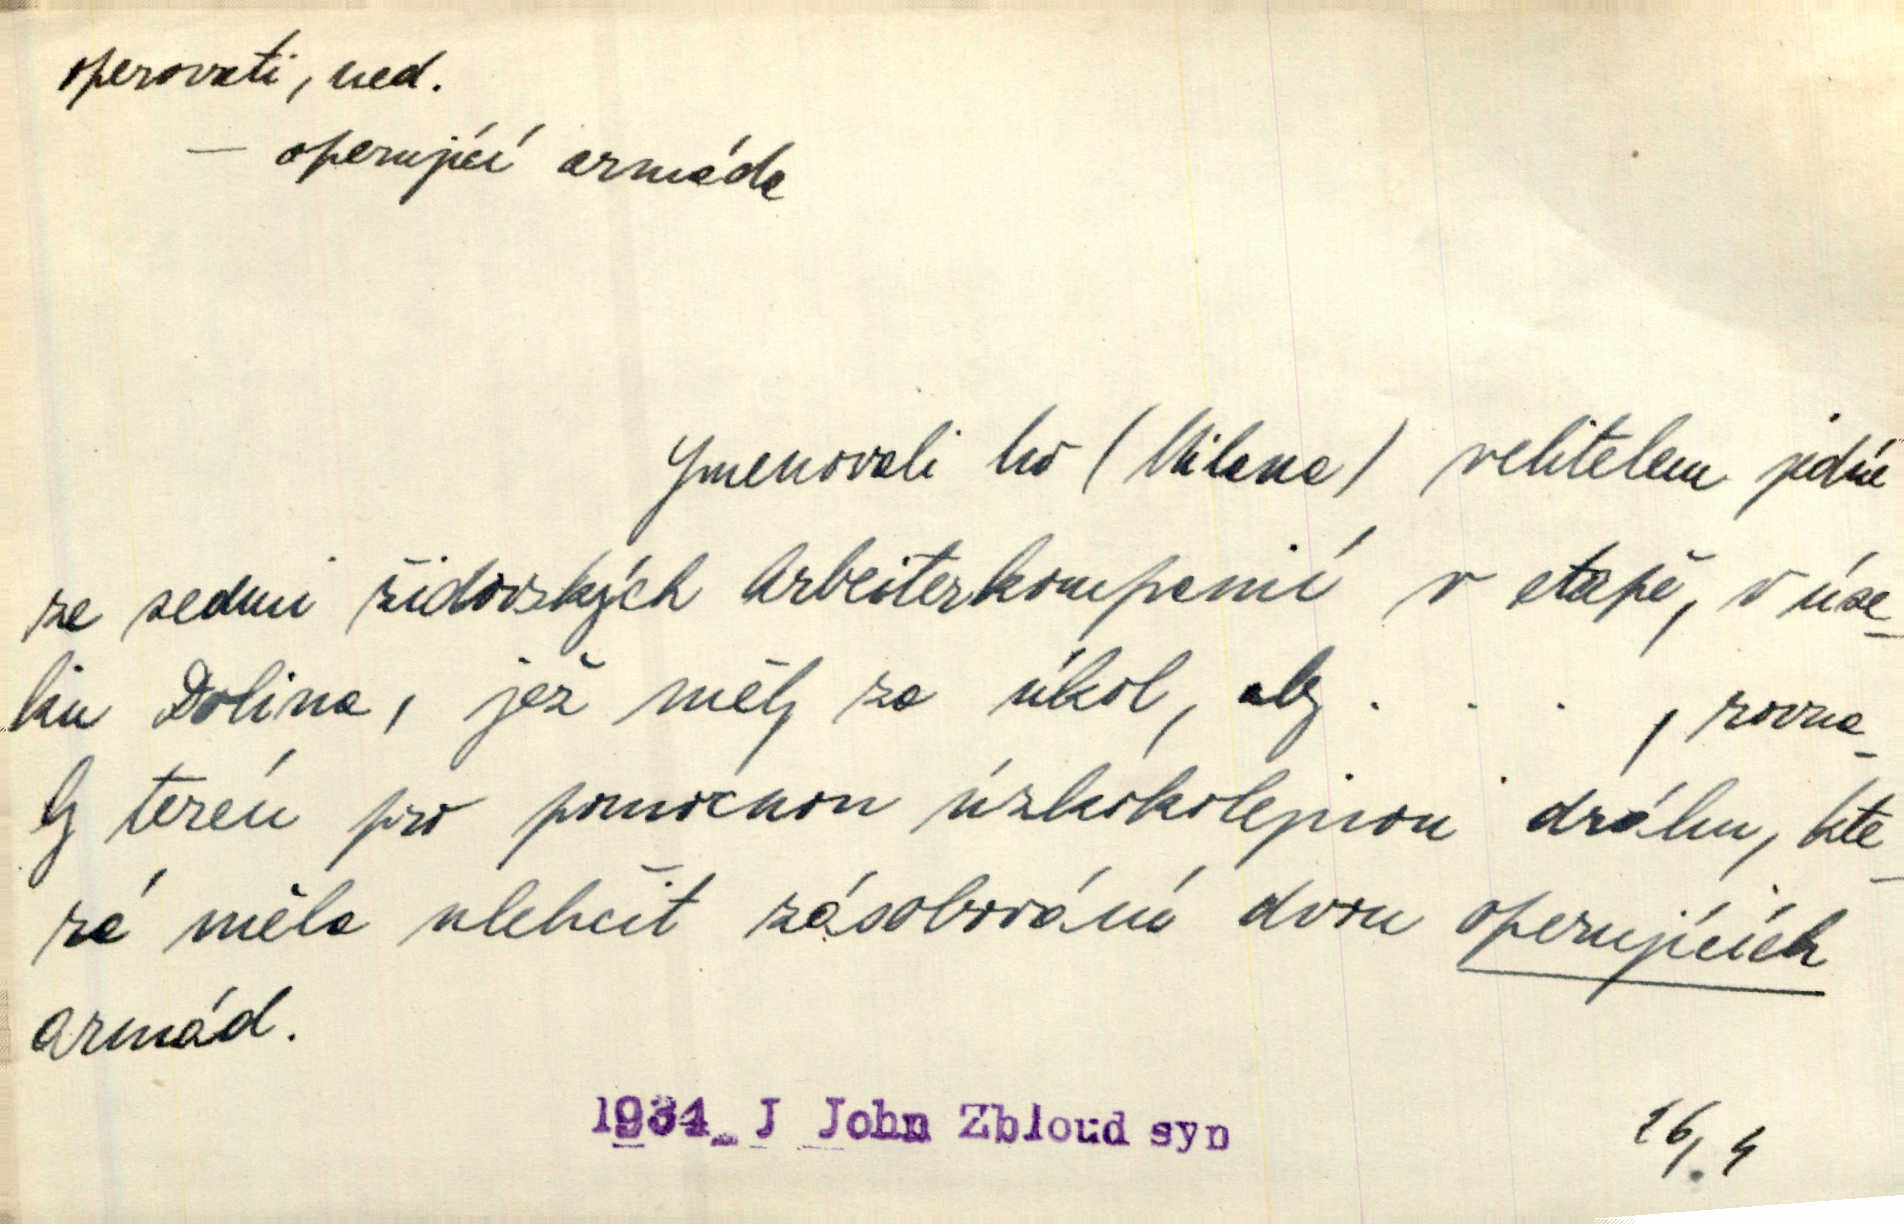 operovati, ned.
— operující armáda
Jmenovali ho (Milana) velitelem jedné
ze sedmi židovských Arbeiterkompanií v etapě, v úse-
ku Dolina, jež měly za úkol, aby . . . , rovna-
ly terén pro pomocnou úzkokolejnou dráhu, kte-
rá měla ulehčit zásobování dvou operujících
armád.
1934 J John Zbloud syn
26/.4